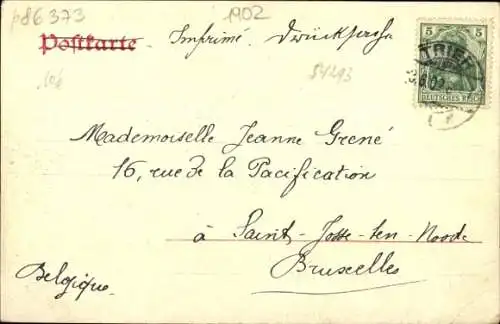 p86373
1902
Postkarte Imprimé. Drücksache
5 5
TRIER
DEUTSCHES REICH
54293
Mademoiselle Jeanne Grené
16, rue de la Pacification
à Saint-Josse-ten-Noode
Bruxelles
Belgique.